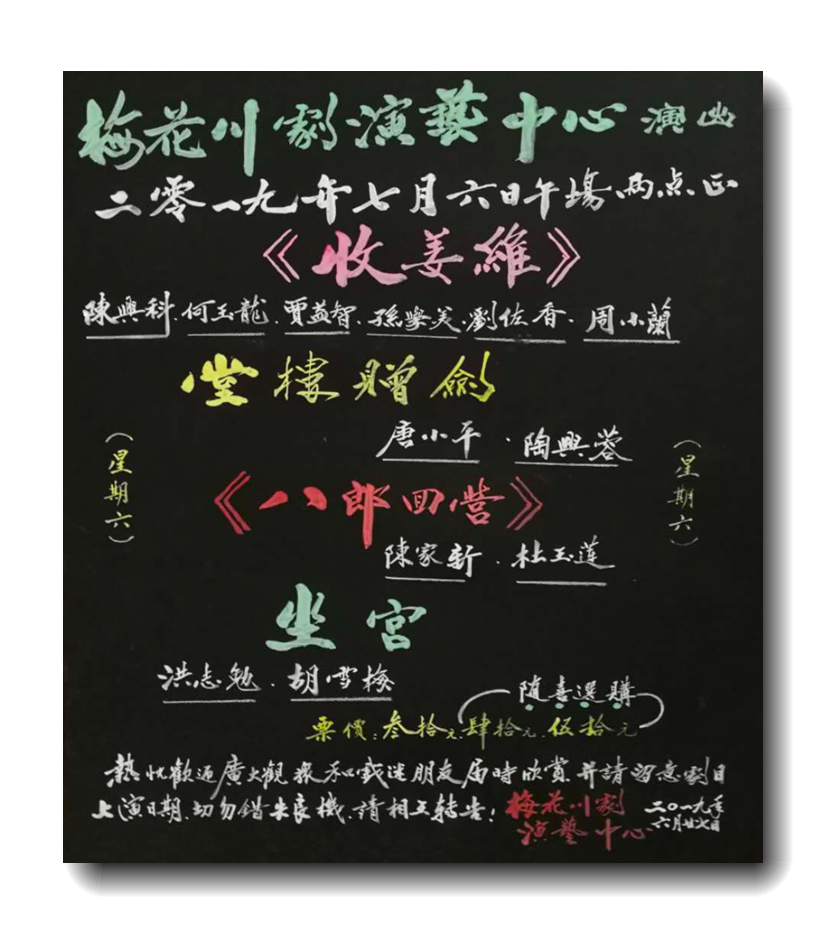 梅花川劇演藝中心演出
二零一九年七月六日午場兩点正
《收姜維》
陳興科.何玉龍.賈益智.孫學美.劉佐香.周小蘭
堂樓贈劍
唐小平.陶興蓉
(星期六)
(星期六)
《八郎回營》
陳家新.杜玉莲
坐宮
洪志勉.胡雪梅
随喜選購
票價:叁拾元.肆拾元.伍拾元
熱忱歡迎廣大觀衆和戏迷朋友届時欣赏.并請留意劇目
上演日期.切勿錯失良機.請相互转告!
梅花川劇
演藝中心
二〇一九年
六月廿七日